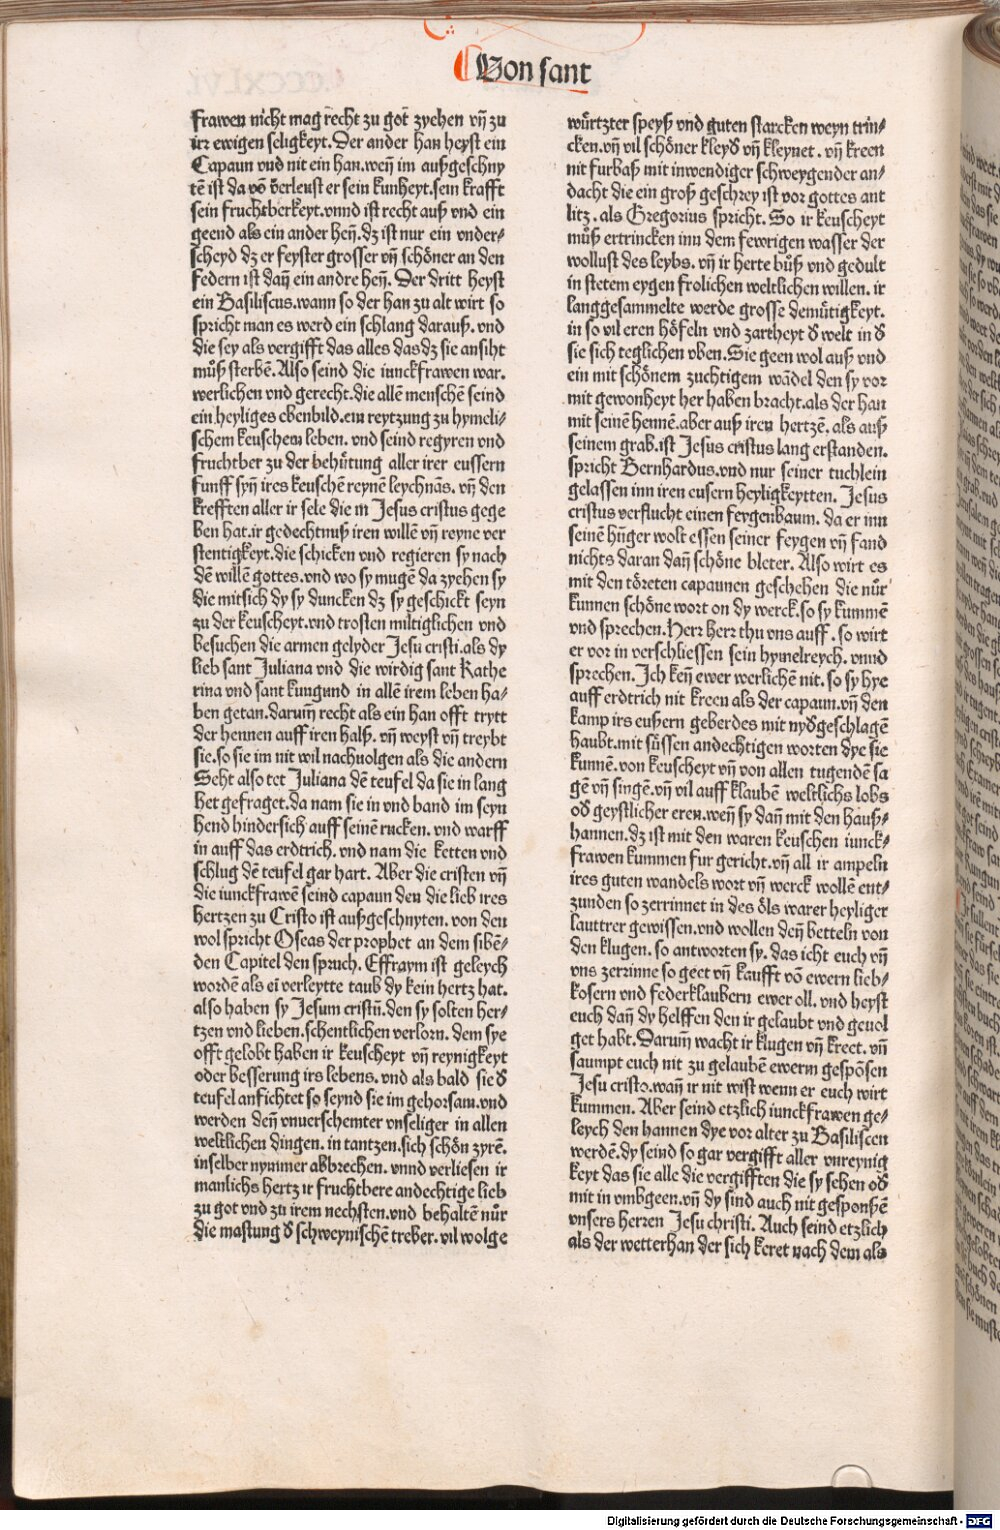 Von sant
frawen nicht mag recht zu got zyehen vñ zu
irr ewigen seligkeyt. Der ander han heyst ein
Capaun vnd nit ein han. weñ im außgeschny
tē ist da vō v̄erleust er sein kunheyt. sein krafft
sein fruchtberkeyt. vnnd ist recht auß vnd ein
geend als ein ander heñ. dz ist nur ein vnder-
scheyd dz er feyster grosser vñ schöner an den
federn ist dañ ein andre heñ. Der dritt heyst
ein Basiliscus. wann so der han zu alt wirt so
spricht man es werd ein schlang darauß. vnd
die sey als vergifft das alles das dz sie ansiht
můß sterbē. Also seind die iunckfrawen war.
werlichen vnd gerecht. die allē menschē seind
ein heyliges ebenbild. ein reytzung zu hymeli-
schem keuschem leben. vnd seind regyren vnd
fruchtber zu der behütung aller irer eussern
funff syñ ires keuschē reynē leychnās. vñ den
krefften aller ir sele die in Jesus cristus gege
ben hat. ir gedechtnuß iren willē vñ reyne ver
stentigkeyt. die schicken vnd regieren sy nach
dē willē gottes. vnd wo sy mugē da zyehen sy
die mitsich dy sy duncken dz sy geschickt seyn
zu der keuscheyt. vnd trosten miltiglichen vnd
besuchen die armen gelyder Jesu cristi. als dy
lieb sant Juliana vnd die wirdig sant Kathe
rina vnd sant kungund in allē irem leben ha-
ben getan. darum̄ recht als ein han offt trytt
der hennen auff iren halß. vñ weyst vñ treybt
sie. so sie im nit wil nachuolgen als die andern
Seht also tet Juliana dē teufel da sie in lang
het gefraget. da nam sie in vnd band im seyn
hend hindersich auff seinē rucken. vnd warff
in auff das erdtrich. vnd nam die ketten vnd
schlug dē teufel gar hart. Aber die cristen vñ
die iunckfrawē seind capaun den die lieb ires
hertzen zu Cristo ist außgeschnyten. von den
wol spricht Oseas der prophet an dem sibē-
den Capitel den spruch. Effraym ist geleych
wordē als ei verleytte taub dy kein hertz hat.
also haben sy Jesum cristū. den sy solten her-
tzen vnd lieben. schentlichen verlorn. dem sye
offt gelobt haben ir keuscheyt vñ reynigkeyt
oder besserung irs lebens. vnd als bald sie d̓
teufel anfichtet so seynd sie im gehorsam. vnd
werden deñ vnuerschemter vnseliger in allen
weltlichen dingen. in tantzen. sich schön zyrē.
inselber nymmer abbrechen. vnnd verliesen ir
manlichs hertz ir fruchtbere andechtige lieb
zu got vnd zu irem nechsten. vnd behaltē nůr
die mastung d̓ schweynischē treber. vil wolge
würtzter speyß vnd guten starcken weyn trin-
cken. vñ vil schöner kleyd̓ vñ kleynet. vñ kreen
nit furbaß mit inwendiger schweygender an-
dacht die ein groß geschrey ist vor gottes ant
litz. als Gregorius spricht. So ir keuscheyt
můß ertrincken inn dem fewrigen wasser der
wollust des leybs. vñ ir herte bůß vnd gedult
in stetem eygen frolichen weltlichen willen. ir
langgesammelte werde grosse demütigkeyt.
in so vil eren höfeln vnd zartheyt d̓ welt in d̓
sie sich teglichen vben. Sie geen wol auß vnd
ein mit schönem zuchtigem wādel den sy vor
mit gewonheyt her haben bracht. als der han
mit seinē hennē. aber auß iren hertzē. als auß
seinem grab. ist Jesus cristus lang erstanden.
spricht Bernhardus. vnd nur seiner tuchlein
gelassen inn iren eusern heyligkeytten. Jesus
cristus verflucht einen feygenbaum. da er inn
seinē hūger wolt essen seiner feygen vñ fand
nichts daran dañ schöne bleter. Also wirt es
mit den töreten capaunen geschehen die nůr
kunnen schöne wort on dy werck. so sy kummē
vnd sprechen. Herr herr thu vns auff. so wirt
er vor in verschliessen sein hymelreych. vnnd
sprechen. Ich keñ ewer werlichen nit. so sy hye
auff erdtrich nit kreen als der capaun. vñ den
kamp irs eußern geberdes mit nyd̓geschlagē
haubt. mit süssen andechtigen worten dye sie
kunnē. von keuscheyt vñ von allen tugendē sa
gē vñ singē. vñ vil auff klaubē weltlichs lobs
od̓ geystlicher eren. weñ sy dañ mit den hauß-
hannen. dz ist mit den waren keuschen iunck-
frawen kummen fur gericht. vñ all ir ampeln
ires guten wandels wort vñ werck wollē ent-
zunden so zerrinnet in des öls warer heyliger
lauttrer gewissen. vnd wollen deñ betteln von
den klugen. so antworten sy. das icht euch vñ
vns zerrinne so geet vñ kaufft vō ewern lieb-
kosern vnd federklaubern ewer oll. vnd heyst
euch dañ dy helffen den ir gelaubt vnd geuol
get habt. Darum̄ wacht ir klugen vñ kreet. vñ
saumpt euch nit zu gelaubē ewerm gespōsen
Jesu cristo. wañ ir nit wist wenn er euch wirt
kummen. Aber seind etzlich iunckfrawen ge-
leych den hannen dye vor alter zu Basiliscen
werdē. dy seind so gar vergifft aller vnreynig
keyt das sie alle die vergifften die sy sehen od̓
mit in vmbgeen. vñ dy sind auch nit gesponßē
vnsers herren Jesu christi. Auch seind etzlich
als der wetterhan der sich keret nach dem als
Digitalisierung gefördert durch die Deutsche Forschungsgemeinschaft - DFG